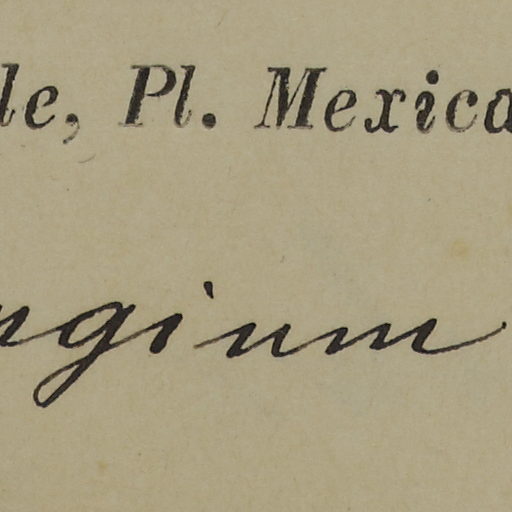 le, Pl. Mexica
ngium